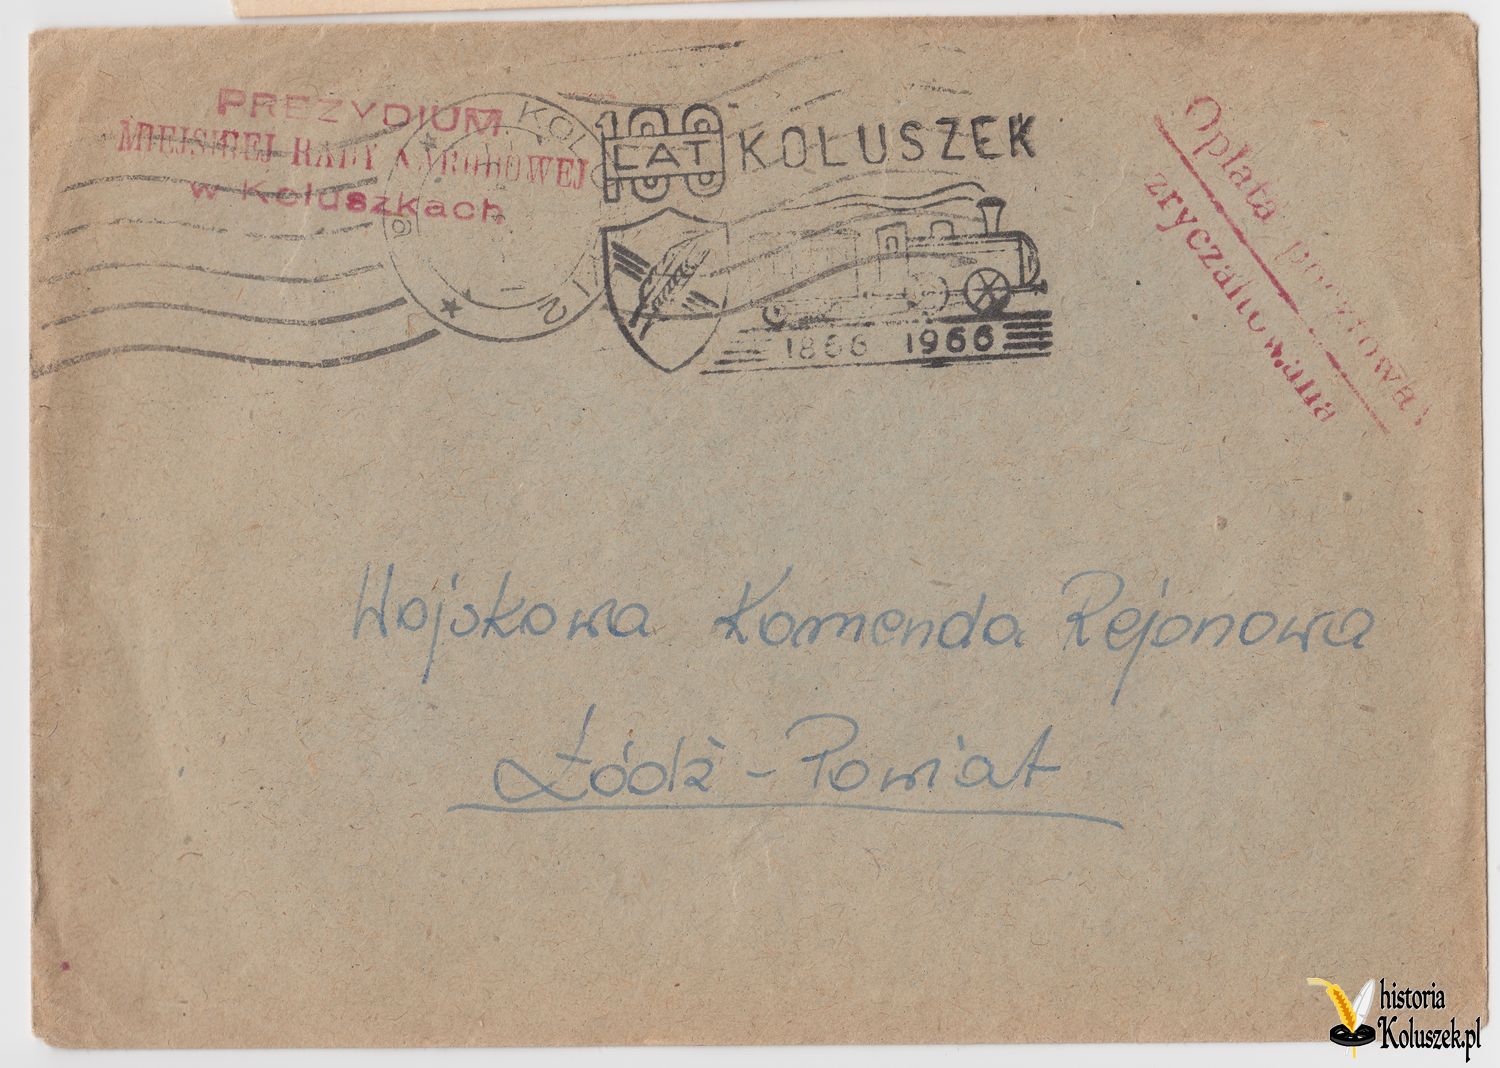 PREZYDIUM
MIEJSKIEJ RADY NARODOWEJ
w Koluszkach
100
LAT
KOLUSZEK
1866 1966
Opłata pocztowa
zryczałtowana
Wojskowa Komenda Rejonowa
Łódź - Powiat
historia
Koluszek.pl